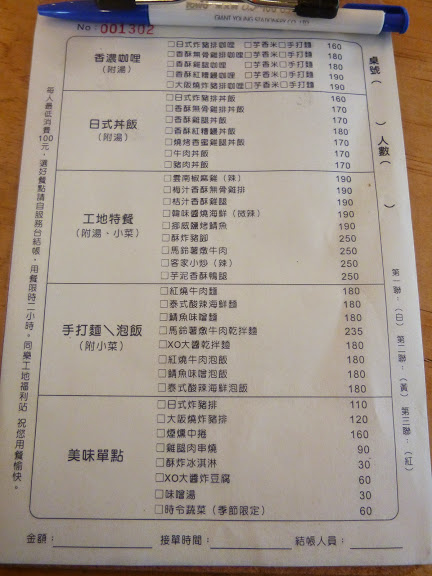 GIANT YOUNG STATIONERY CO., LTD.
No：001302
香濃咖哩
(附湯)
□日式炸豬排咖哩 □芋香米□手打麵 160
□香酥無骨雞排咖哩 □芋香米□手打麵 180
□香酥雞腿咖哩 □芋香米□手打麵 180
□香酥紅糟咖哩 □芋香米□手打麵 190
□大阪燒炸豬咖哩 □芋香米□手打麵 190
日式丼飯
(附湯)
□日式炸豬排丼飯 160
□香酥無骨雞排丼飯 170
□香酥雞腿丼飯 170
□香酥紅糟雞丼飯 180
□燒烤香蜜雞腿丼飯 170
□牛肉丼飯 170
□豬肉丼飯 170
工地特餐
(附湯、小菜)
□雲南椒麻雞（辣） 190
□梅汁香酥無骨雞排 190
□桔汁香酥雞腿 190
□韓味醬燒海鮮（微辣） 190
□挪威鹽烤鯖魚 190
□酥炸豬腳 250
□馬鈴薯燉牛肉 250
□客家小炒（辣） 250
□芋泥香酥鴨腿 250
手打麵＼泡飯
(附小菜)
□紅燒牛肉麵 180
□泰式酸辣海鮮麵 180
□鯖魚味噌麵 180
□馬鈴薯燉牛肉乾拌麵 235
□XO大醬乾拌麵 180
□紅燒牛肉泡飯 180
□鯖魚味噌泡飯 180
□泰式酸辣海鮮泡飯 180
美味單點
□日式炸豬排 110
□大阪燒炸豬排 120
□煙燻中捲 160
□雞腿肉串燒 90
□酥炸冰淇淋 30
□XO大醬炸豆腐 60
□味噌湯 30
□時令蔬菜（季節限定） 60
桌號（ ）人數（ ）
第一聯：（白）第二聯：（黃）第三聯：（紅）
每人最低消費100元，選好餐點請自服務台結帳，用餐限時二小時。同樂工地福利站 祝您用餐愉快。
金額： 接單時間： 結帳人員：